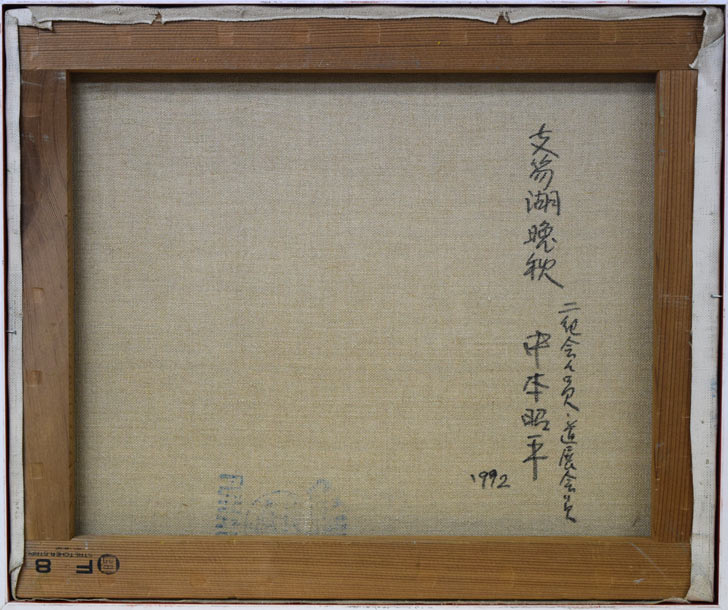 支笏湖晩秋
二紀会会員・道展会員
中本昭平
1992
F 8